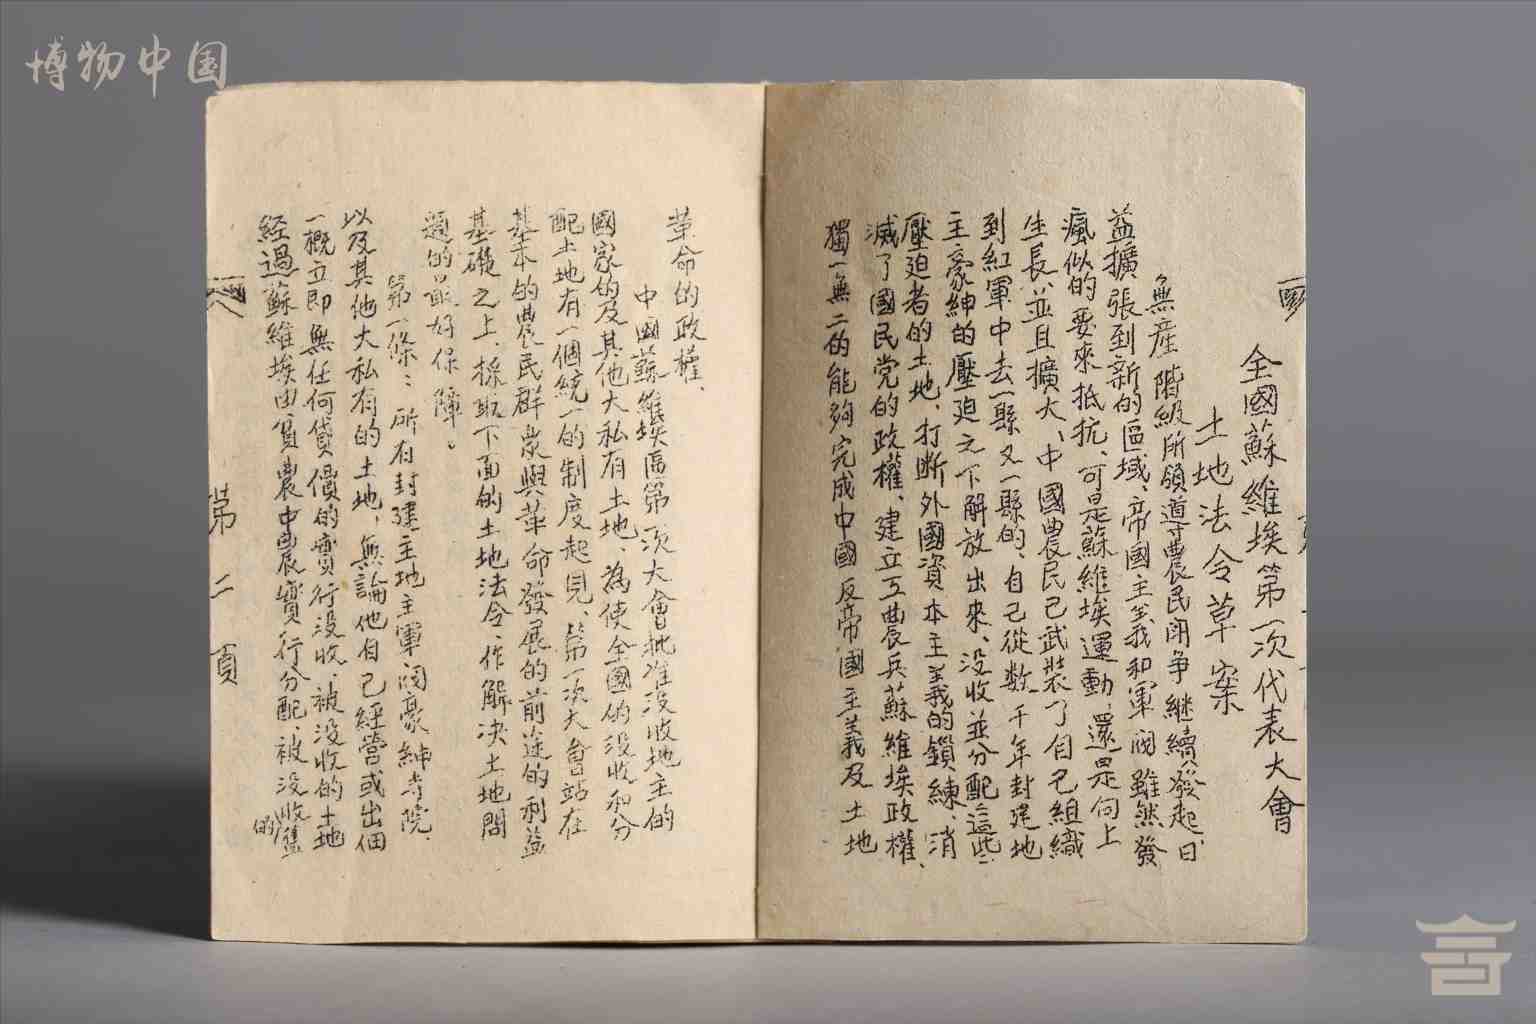 博物中国
全國蘇維埃第一次代表大會
土地法令草案
無產階級所領導農民鬥争継續發起、日
益擴張到新的區域、帝國主義和軍閥雖然發
瘋似的要來抵抗、可是蘇維埃運動,還是向上
生長、並且擴大、中國農民已武裝了自己組織
到紅軍中去一縣又一縣的、自己從数千年封建地
主豪紳的壓廹之下解放出來、没收並分配這些
壓廹者的土地、打断外國資本主義的鎖練、消
滅了國民党的政權、建立工農兵蘇維埃政權、
獨一無二的能夠完成中國反帝國主義及土地
革命的政權、
中國蘇維埃區第一次大會批准没收地主的
國家的及其他大私有土地、為使全國的没收和分
配土地有一個統一的制度起見、第一次大會站在
基本的農民群衆與革命發展的前途的利益
基礎之上、採取下面的土地法令、作解决土地問
題的最好保障。
第一條：所有封建主地主軍閥豪紳寺院、
以及其他大私有的土地,無論他自己經營或出佃
一概立即無任何貸價的實行没收、被没收的土地
经過蘇維埃由貧農中農實行分配、被没收舊
的
第二頁